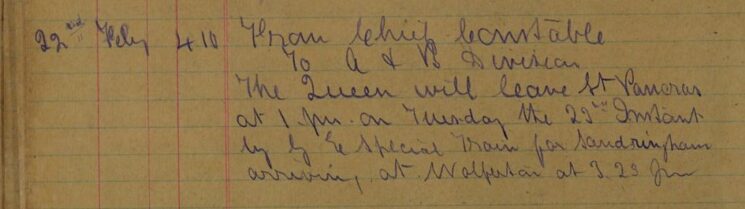 22nd Feby 410 From Chief Constable
To A & B Division
The Queen will leave St Pancras
at 1 pm. on Tuesday the 23rd Instant
by G E Special Train for Sandringham
arriving at Wolferton at 3.23 pm